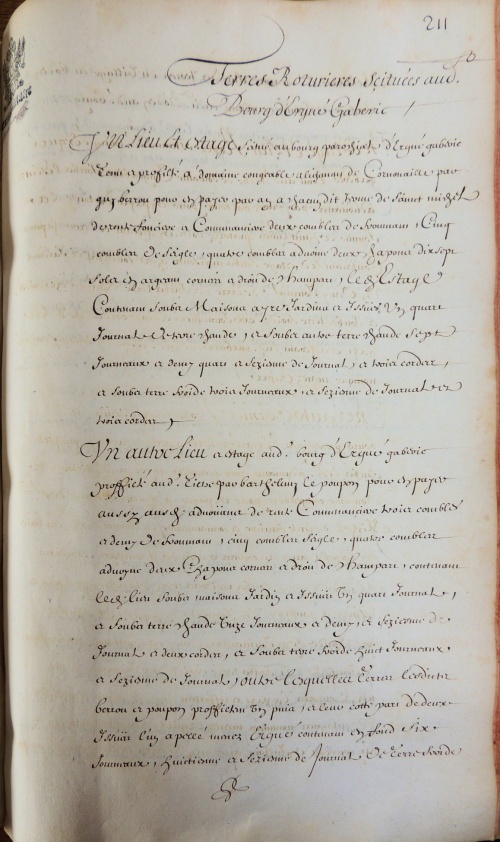 211
Terres Roturieres Scituées aud.
Bourg d'Ergué Gaberic /
Un Lieu Et estage scittué au bourg paroichial d'Ergué gaberic
Tenu et profité a domaine congeable a l'usement de Cornouaille par
guy berrou pour en payer par an a chacun dit terme de Sainct michel
de rente fonciere et Convenanciere deux combles de froumant, Cinq
combles de Seigle, quatre combles advoine deux chapons dix sept
solz En argent corvées et droit de champart, led. Estage
Contenant soubz Maisons ayre Jardins et Issues, Un quart
Journal de terre chaude, et soubz autre terre chaude sept
Journeaux et demy quart et seziesme de Journal, et trois cordes,
et soubz terre froide trois Journeaux, et seziesme de Journal et
trois cordes,
Un autre Lieu et estage aud. bourg d'Ergué gaberic
proffité aud. tiltre par barthelemy le poupon pour en payer
aussy de rente Convenanciere trois combles
et demy de froumant, cinq combles seigle, quatre combles
advoyne deux Chapons corvées et droit de champart, contenant
led. lieu soubz maisons Jardin et Issues Un quart Journal,
et soubz terre chaude Unze Journeaux et demy, et seziesme de
Journal et deux cordes, et soubz terre froide huict Journeaux,
et seziesme de Journal, outre lesquelles terres lesdits
berrou et poupon proffitent Un puis, et leur cotte part de deux
Issues l'un apellé menez Ergué contenant En fond six
Journeaux, huictiesme et seziesme de Journal De terre froide